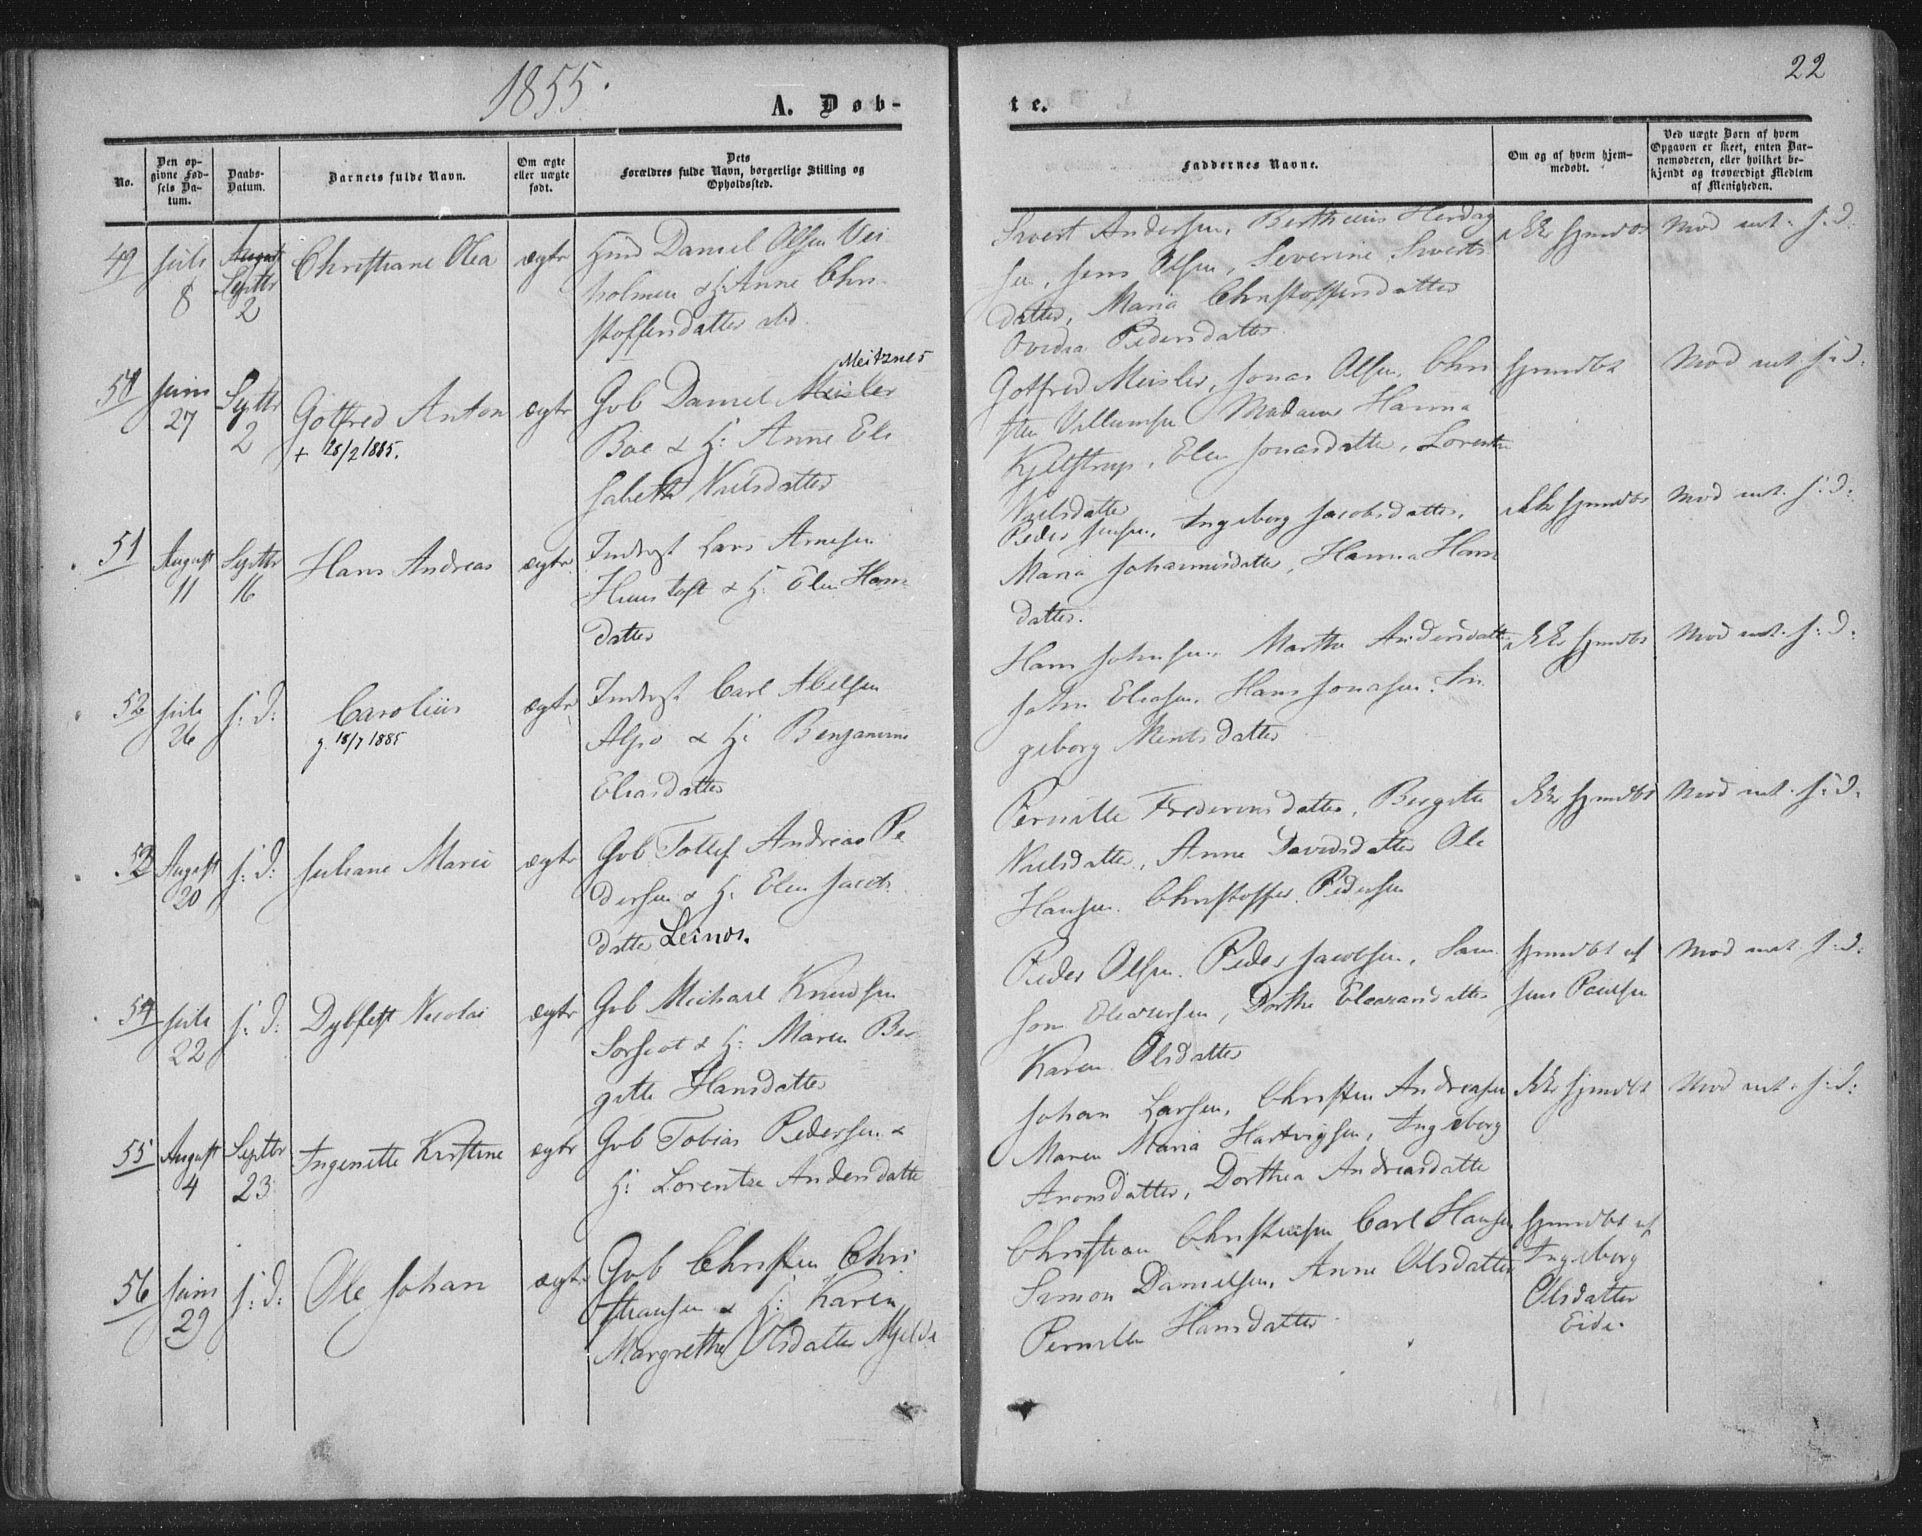 1855.
22
A. Døb-
te.
No.
Den op-
givne Fød-
sels Da-
tum.
Daabs-
Datum.
Barnets fulde Navn.
Om ægte
eller uægte
født.
Dets
Forældres fulde Navn, borgerlige Stilling og
Opholdssted.
Faddernes Navne.
Om og af hvem hjem-
medøbt.
Ved uægte Børn af hvem
Opgaven er skeet, enten Bar-
nemoderen, eller hvilket be-
kjendt og troværdigt Medlem
af Menigheden.
49
Juli
8
August
Septbr
2
Christiane Olea
ægte
Huusm Daniel Olsen Vei
holmen & H: Anne Chri
stoffersdatter ibd.
Sivert Andersen, Bertheus Herdag
sen, Jens Olsen, Severine Siverts
datter, Maria Christoffersdatter
Ovedia Pedersdatter
ikke hjmdbt
Mod. int. s: d:
50
Juni
27
Septbr
2
Gotfred Anton
+ 28/2 1885.
ægte
Meitznes
Gvb Daniel Meisler
Boe & H: Anne Eli
sabeth Nielsdatter
Gotfred Meisler, Jonas Olsen, Chri
sten Villumsen Madame Hanna
Kjelstrup, Elen Jonasdatter, Lorentze
Nielsdatter
hjmdbt
Mod int. s: d:
51
August
11
Septbr
16
Hans Andreas
ægte
Inderst Lars Arnesen
Huustoft & H: Elen Hans
datter
Peder Jensen, Ingeborg Jacobsdatter,
Maria Johannesdatter, Hanna Hans
datter.
ikke hjmdbt
Mod int. s: d:
52
Juli
26
s: d:
Carolius
g. 18/7 1885
ægte
Inderst Carl Abelsen
Alsvo & H: Benjamine
Eliasdatter
Hans Johnsen, Martha Andersdatter
John Eliasen, Hans Jonasen, In
geborg Mentsdatter
ikke hjmdbt
Mod int. s: d:
53
August
20
s: d:
Juliane Marie
ægte
Gvb Tollef Andreas Pe
dersen & H: Elen Jacobs
datter Leinos.
Pernille Frederiksdatter, Birgitte
Nielsdatter, Anne Davidsdatter Ole
Hansen, Christoffer Pedersen
ikke hjmdbt
Mod int. s: d:
54
Juli
22
s: d:
Dybfest Nicolai
ægte
Gvb Michael Knudsen
Sorfiot & H: Maren Ber
gitte Hansdatter
Peder Olsen, Peder Jacobsen, Sam
son Eleasersen, Dorthe Eleasarsdatter
Karen Olsdatter
hjmdbt af
Jens Paulsen
Mod int. s: d:
55
August
4
Septbr
23
Ingenitte Kirstine
ægte
Gvb Tobias Pedersen &
H: Lorentze Andersdatter
Johan Larsen, Christen Andreasen
Maren Maria Hartvigsen, Ingeborg
Aronsdatter, Dorthea Andreasdatter
ikke hjmdbt
Mod int. s: d:
56
Juni
29
s: d:
Ole Johan
ægte
Gvb Christen Chri
stiansen & H: Karen
Margrethe Olsdatter Mjelde
Christian Christensen Carl Hansen
Simon Danielsen, Anne Olsdatter
Pernille Hansdatter
hjmdbt af
Ingeborg
Olsdatter
Eide.